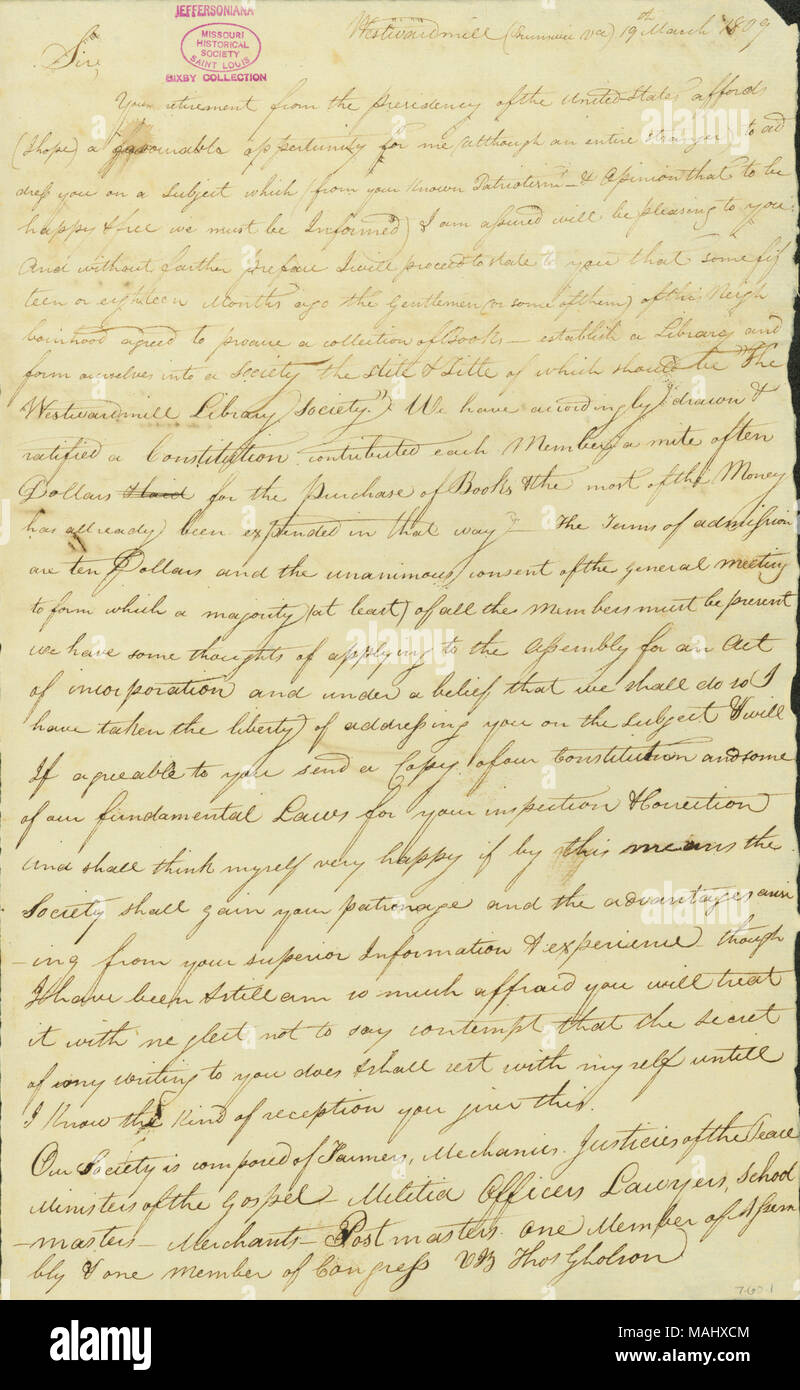 JEFFERSONIANA
MISSOURI
HISTORICAL
SOCIETY
SAINT LOUIS
BIXBY COLLECTION
Westwardmill (Brunswic Va) 19th March 1809
Sir,
Your retirement from the presidency of the United States affords
(I hope) a favourable oppertunity for me (although an entire stranger) to ad
dress you on a subject which (from your known Patriotism & Opinion that to be
happy & free we must be Informed) I am assured will be pleasing to you:
And without farther preface I will proceed to state to you that some fif
teen or eighteen Months ago the Gentlemen (or some of them) of this Neigh
bourhood agreed to procure a collection of Books – establish a Library and
form ourselves into a Society the stile & Title of which should be "The
Westwardmill Library Society." We have accordingly drawn &
ratified a Constitution contributed each Member a mite of ten
Dollars & laid for the purchase of Books & the most of the Money
has allready been expended in that way – The Terms of admission
are ten Dollars and the unanimous consent of the general meeting
to form which a majority (at least) of all the Members must be present
we have some thoughts of applying to the Assembly for an Act
of incorporation and under a belief that we shall do so I
have taken the liberty of addressing you on the subject & will
If agreeable to you send a Copy of our Constitution and some
of our fundamental Laws for your inspection & Correction
and shall think myself very happy if by this means the
Society shall gain your patronage and the advantages aris
-ing from your superior Information & experience though
I have been & still am so much affraid you will treat
it with neglect not to say contempt that the secret
of my writing to you does & shall rest with myself untill
I know the kind of reception you give this.
Our Society is composed of Farmers, Mechanics Justicies of the Peace
Ministers of the Gospel – Militia Officers Lawyers, School
-masters – Merchants – Postmasters one Member of Assem
bly & one Member of Congress Viz Thos Gholson
7.60.1
alamy
alamy stock photo
Image ID: MAHXCM
www.alamy.com